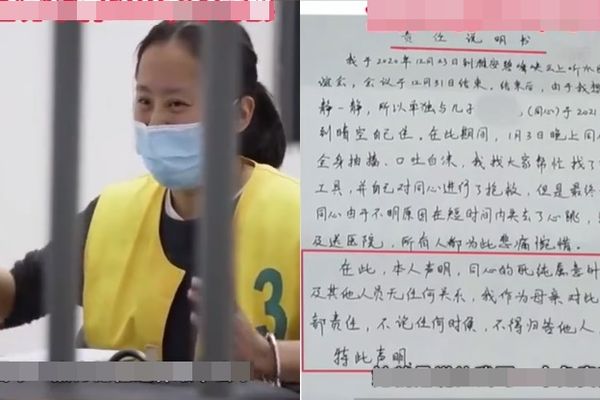 3
责任说明书
我于2020年12月23日到雅安碧峰峡云上听
谊会，会议于12月31日结束，结束后，由于我想
静一静，所以单独与儿子 （同心）于2021
到晴空自己住。在此期间，1月3日晚上同心
全身抽搐、口吐白沫，我找大家帮忙找了
工具，并自己对同心进行了抢救，但是最终
同心由于不明原因在短时间内失去了心跳，
及送医院，所有人都为此悲痛惋惜。
在此，本人声明，同心的死纯属意外
及其他人员无任何关系，我作为母亲对此
部责任，不论任何时候，不得归咎他人，
特此声明